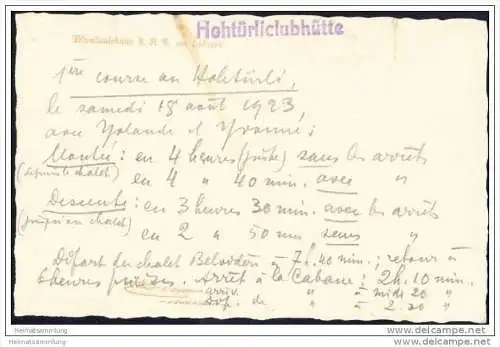 Hohtürliclubhütte
Blümlisalphütte S. A. C.
1ère course au Hohtürli,
le samedi 18 août 1923,
avec Yolande et Yvonne:
Montée: en 4 heures (juste) sans les arrêts
(depuis le chalet) en 4 " 40 min. avec "
Descente: en 3 heures 30 min. avec les arrêts
(jusqu'au chalet) en 2 " 50 min sans "
Départ du chalet Belvédère à 7 h. 40 min.; retour à
6 heures précises. Arrêt à la Cabane: 2 h. 10 min.
arriv. " à midi 20 "
Dép. de " à 2.30 "
Heimatsammlung
Heimatsammlung
Heimatsammlung